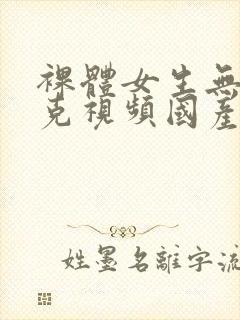 裸體女生無
克視頻國產
姓墨名離字流